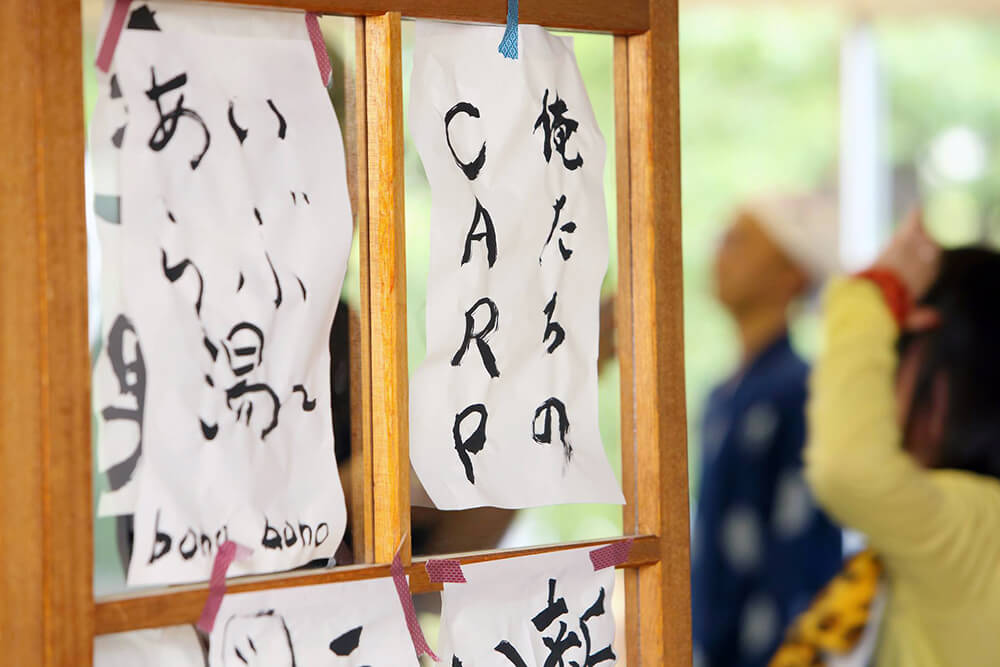 あい
らぶ
湯
bono bono
俺たちの
CARP
新